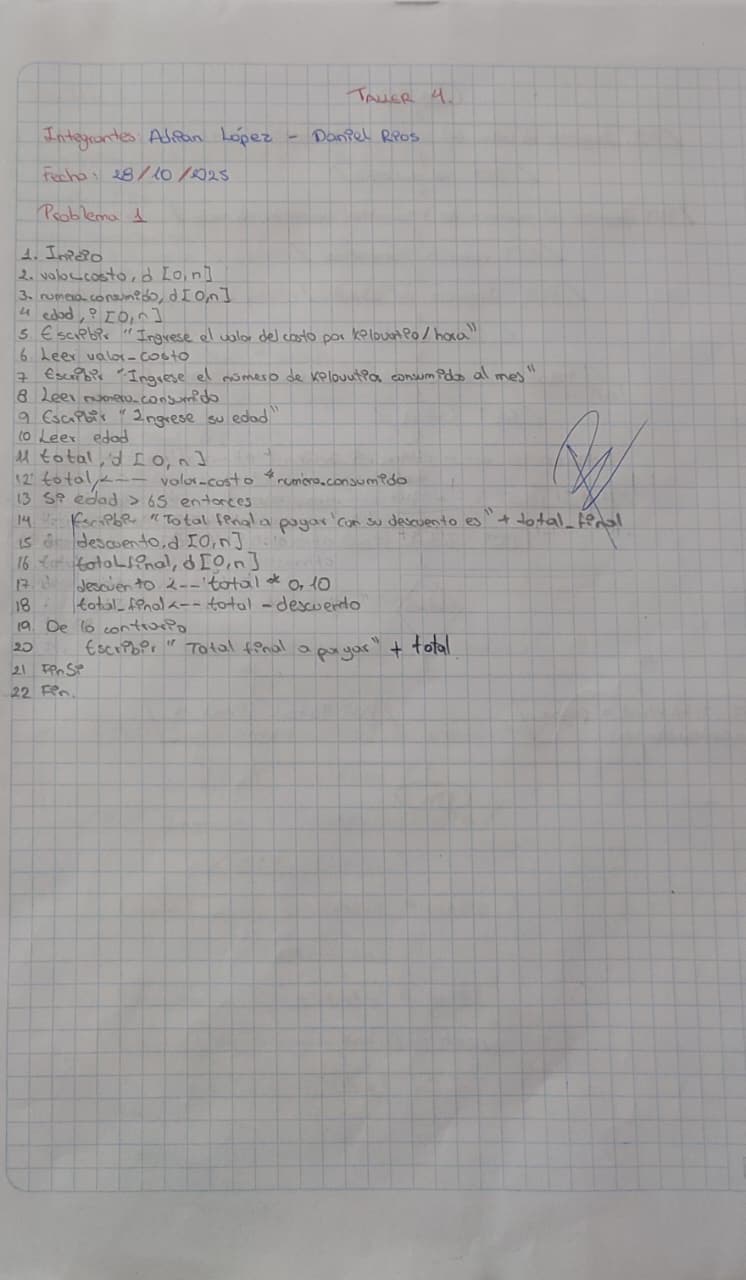 TALLER 4.
Integrantes: Adrian López - Daniel Rios
Fecha: 28/10/2025
Problema 1
1. Inicio
2. valor_costo, d [0,n]
3. numero_consumido, d[0,n]
4 edad, ? [0,n]
5 Escribir "Ingrese el valor del costo por kilovatio/hora"
6 Leer valor_costo
7 Escribir "Ingrese el número de kilovatios consumidos al mes"
8 Leer numero_consumido
9 Escribir "Ingrese su edad"
10 Leer edad
11 total, d [0,n]
12 total <--- valor_costo * numero_consumido
13 Si edad > 65 entonces
14 Escribir "Total final a pagar con su descuento es" + total_final
15 descuento, d [0,n]
16 total_final, d [0,n]
17 descuento <-- total * 0,10
18 total_final <-- total - descuento
19. De lo contrario
20 Escribir "Total final a pagar" + total
21 FinSi
22 Fin.